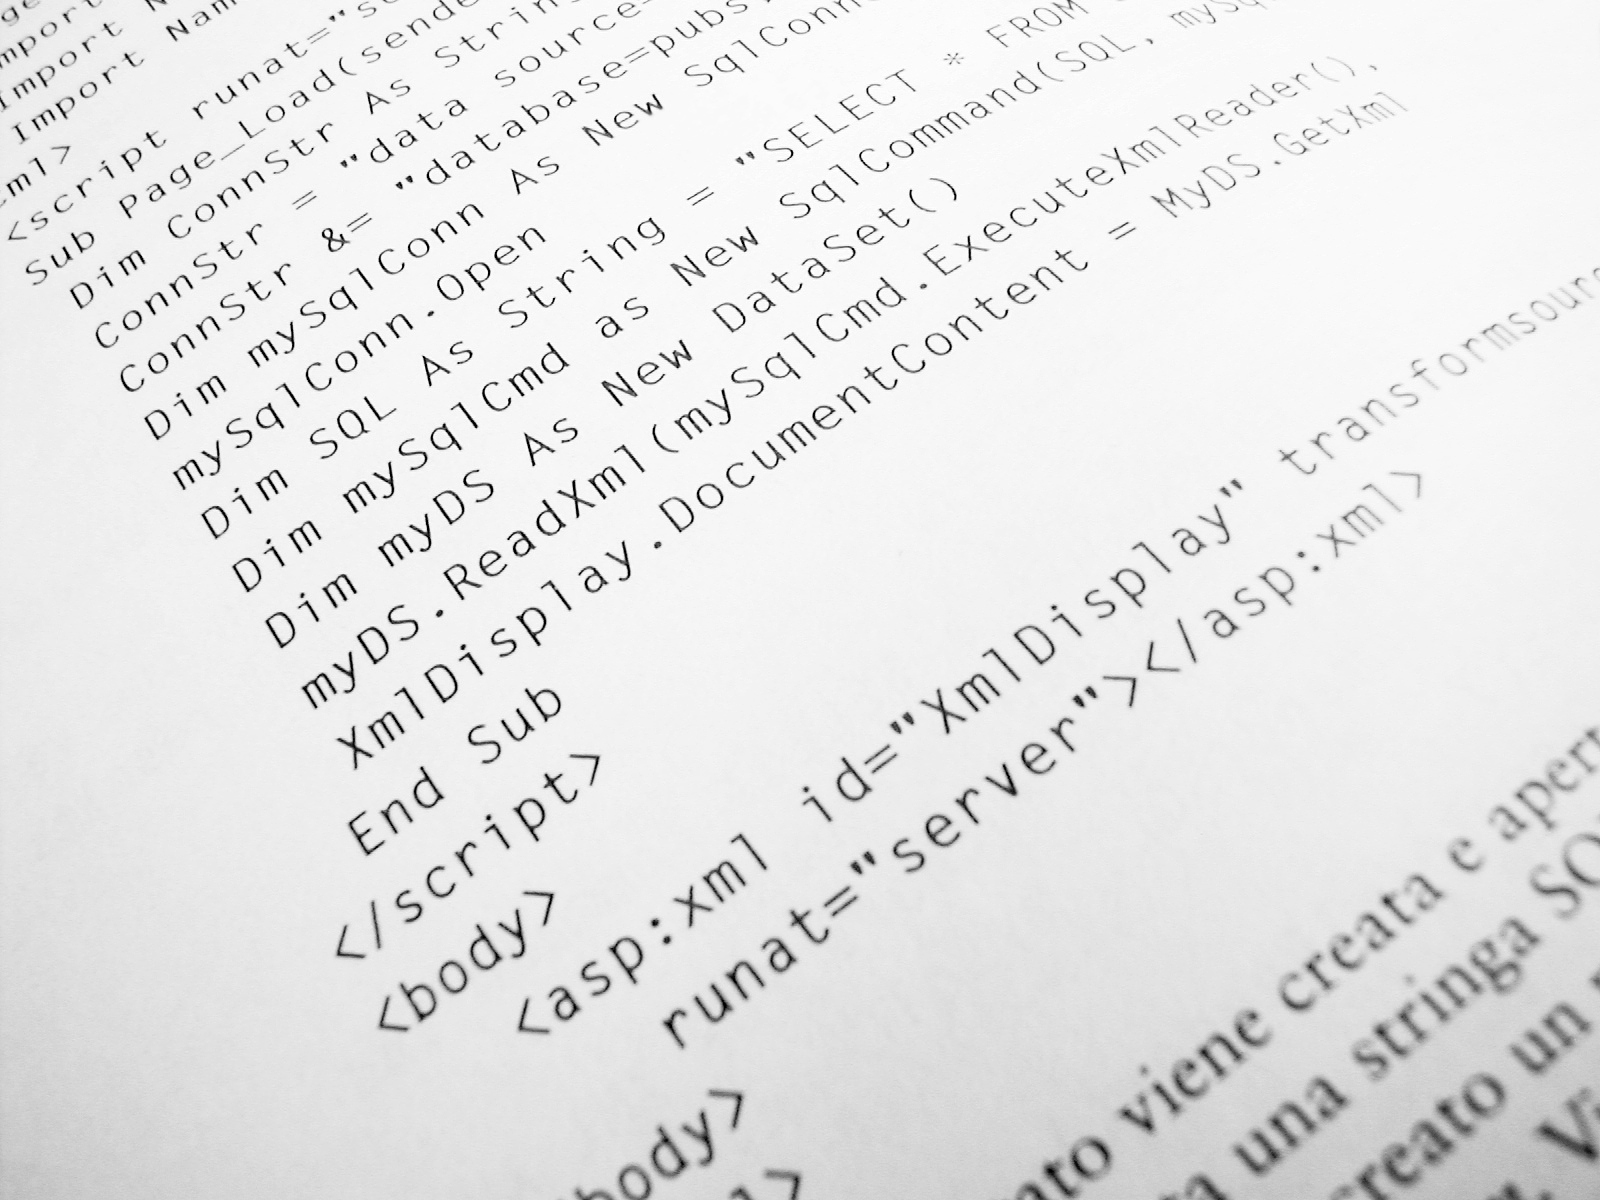 Import
Import
Import
<script runat="
Sub Page_Load(
Dim ConnStr As String
ConnStr = "data source=
ConnStr &= "database=pubs;
Dim mySqlConn As New SqlConn
mySqlConn.Open
Dim SQL As String = "SELECT * FROM
Dim mySqlCmd as New SqlCommand(SQL,
Dim myDS As New DataSet()
myDS.ReadXml(mySqlCmd.ExecuteXmlReader(),
XmlDisplay.DocumentContent = MyDS.GetXml
End Sub
</script>
<body>
<asp:xml id="XmlDisplay" transformsourc
runat="server"></asp:xml>
body>
viene creata e aper
una stringa SQ
creato un